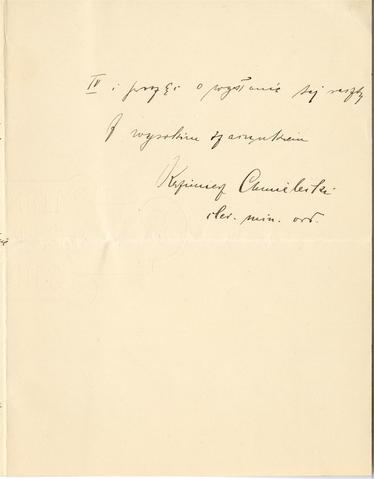 IV i proszę o wysłanie tej reszty
Z wysokim szacunkiem
Kazimierz Chmielewski
cler. min. ord.